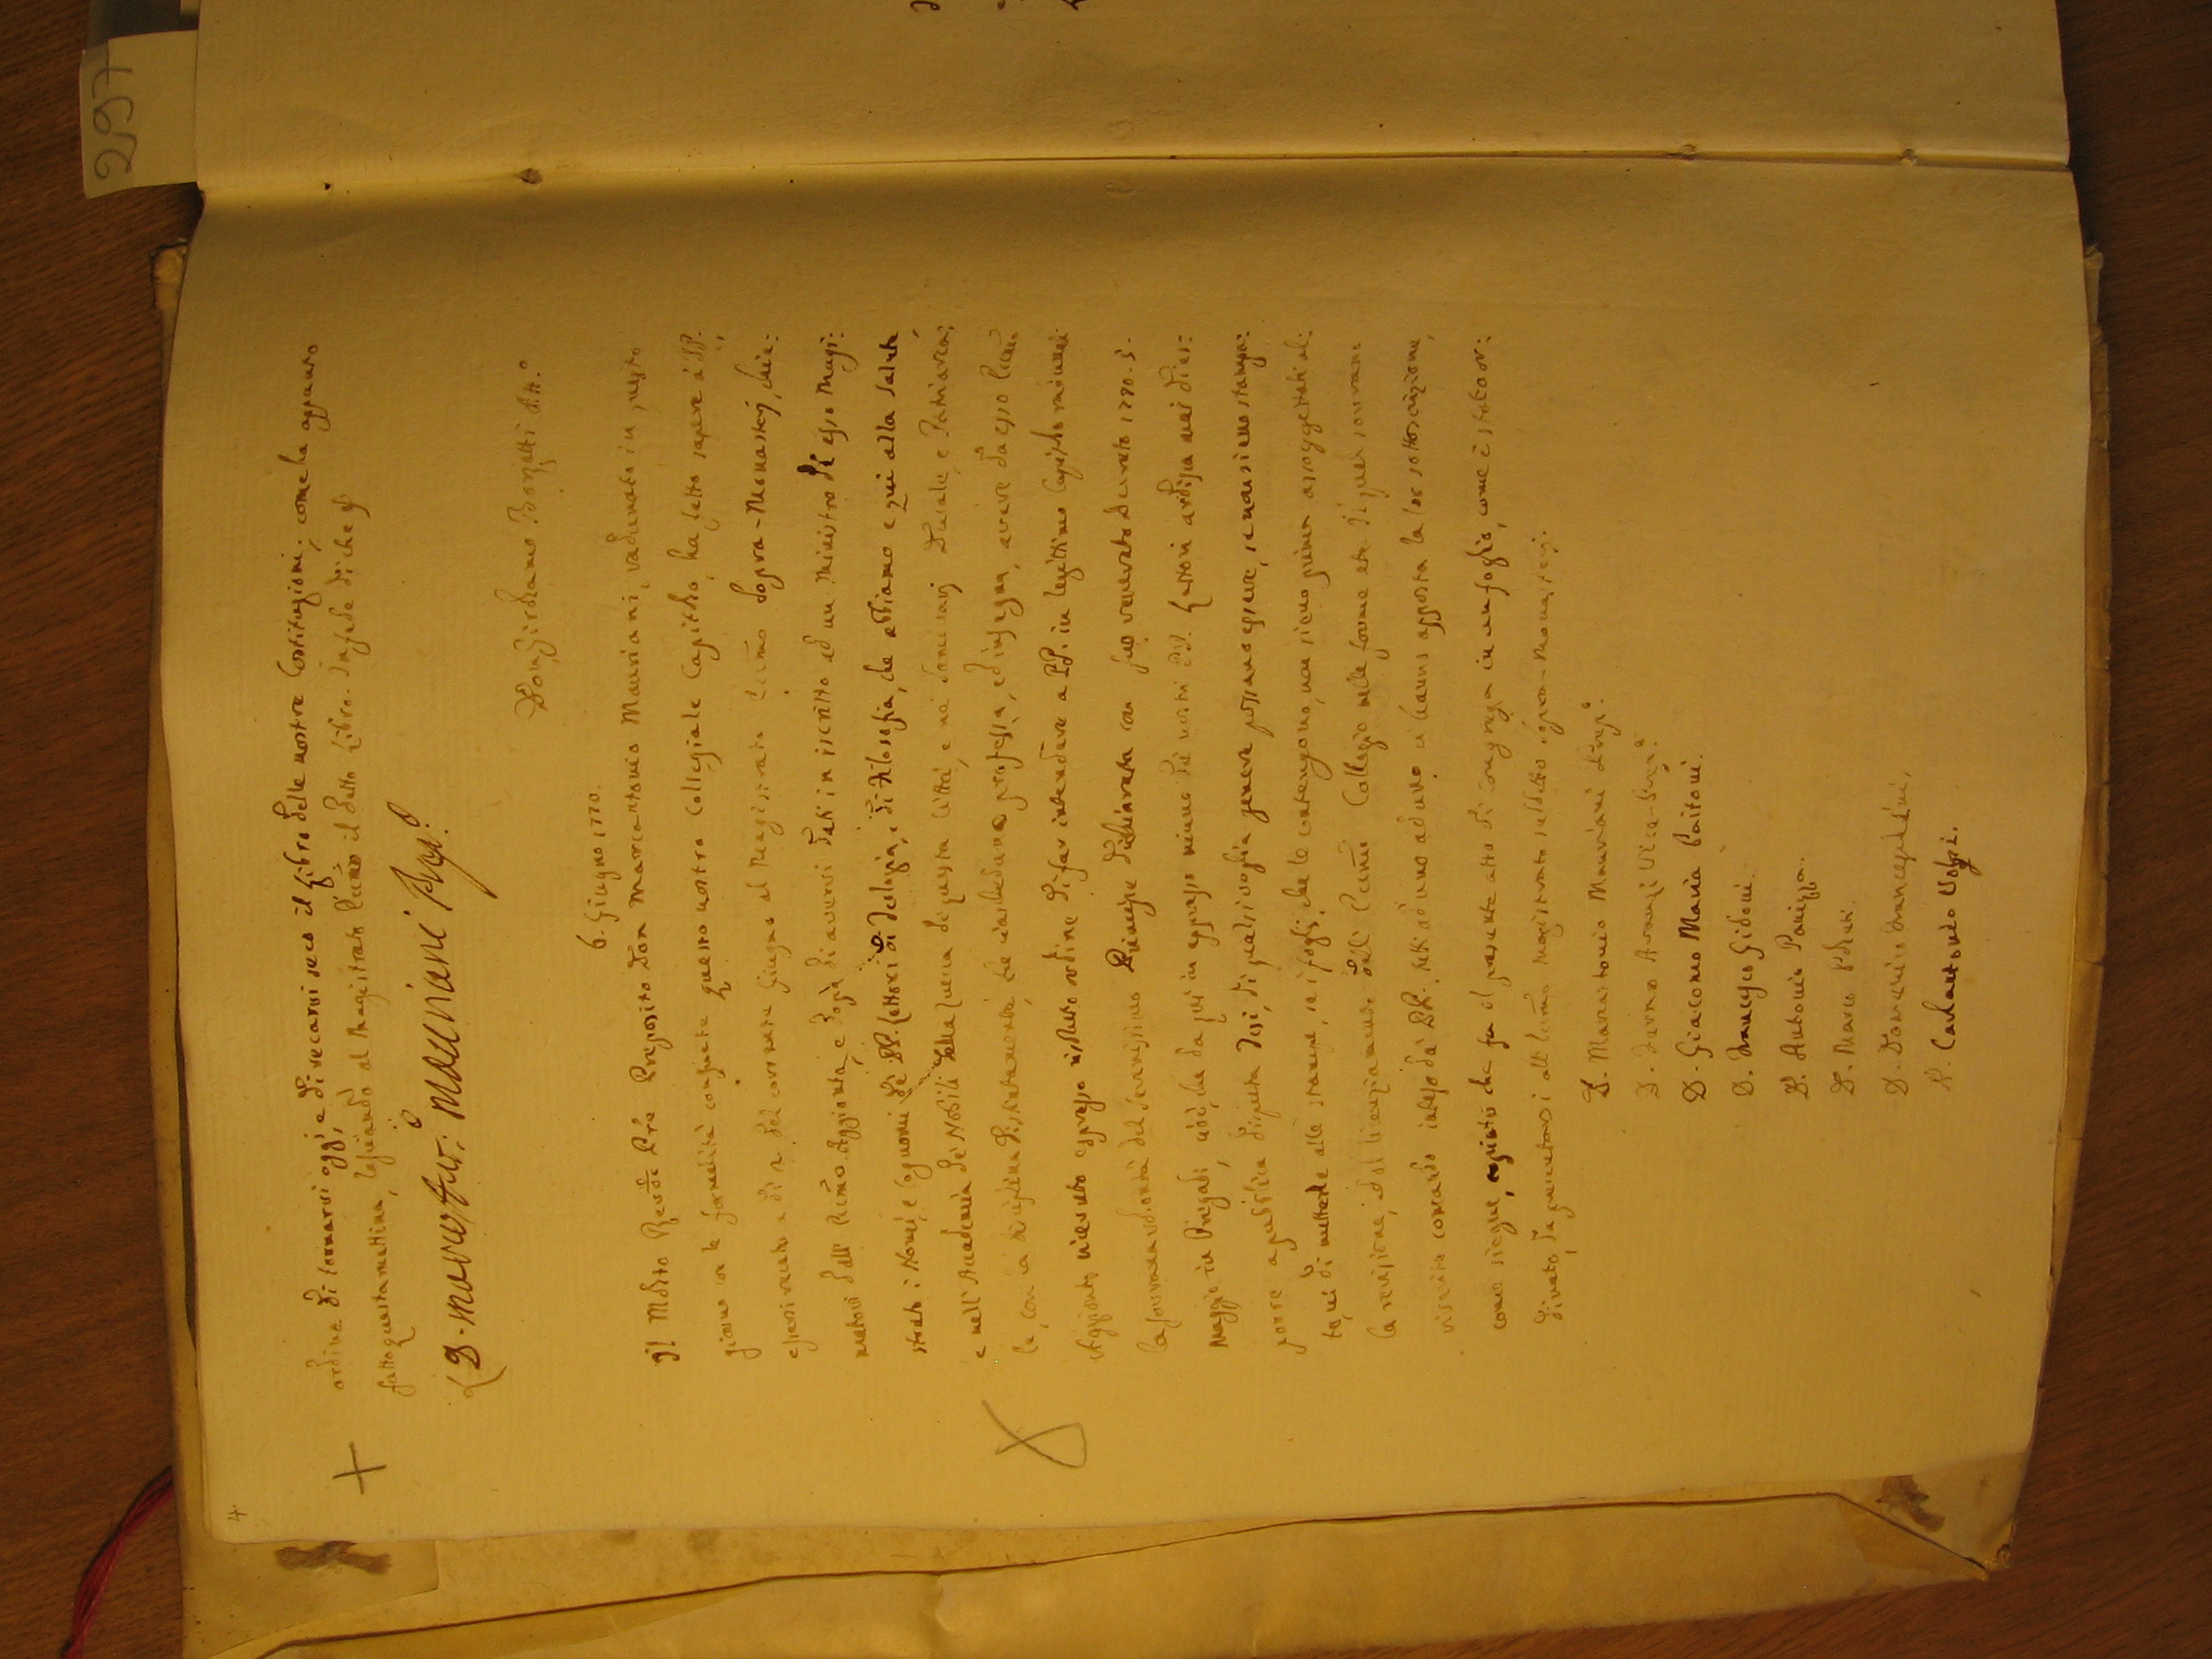 297
4
ordine di tornarvi oggi, e di recarvi seco il Libro delle nostre Costituzioni; come ha appunto
fatto questa mattina, lasciando al Magistrato Eccmo il detto Libro. In fede di che
D. Marcant.: Mauriani Prep.º
Don Girolamo Att.º
6. Giugno 1770.
Il Mdto Revdo Pré Preposito Don Marcantonio Mauriani, radunato in questo
giorno con le formalità consuete questo nostro Collegiale Capitolo, ha fatto sapere a' PP.
essersi recato a dì 2 del corrente Giugno al Magistrato Eccmo sopra-Monasterj, chia:
matovi dall' Eccmo Aggionto, e dopo di avervi dati in iscritto ad un Ministro di esso Magi:
strato i Nomi, e Cognomi de' PP. Lettori di Teologia, e di Filosofia, che abbiamo e qui alla Salute,
e nell' Accademia de' Nobili della Zuecca di questa Città, e né Seminarj Ducale, e Patriarca:
le, con la disciplina distintamente, che ciascheduno professa, ed insegna, avere da esso Eccmo
Aggionto ricevuto espresso risoluto ordine di far intendere a' PP. in legittimo Capitolo radunati
la sovrana volontà del Serenissimo Principe dichiarata con suo venerato Decreto 1770. 3.
Maggio in Pregadi, cioè, che da qui in appresso niuno de' nostri PP. Lettori ardisca mai di es:
porre a pubblica disputa Tesi, di qualsivoglia genere possano essere, se non sieno stampa:
te, né di metterle alle stampe, se i fogli, che le contengono, non sieno prima assoggettati al:
la revisione, ed al licenziamento dell' Eccmi Collegio nelle forme etc. Di quel sovrano
riverito comando inteso da' PP. tutti ad uno ad uno ci hanno apposta la lor sottoscrizione,
come siegue, copiato che fu il presente atto di Congrega in un foglio, come è stato or:
dinato, da presentarsi all' Eccmo Magistrato suddetto sopra-Monasterj.
D. Marcantonio Mauriani Prep.º
D. Vice-Prep.º
D. Giacomo Maria Paitoni.
D. Francesco Gidoni.
D. Antonio Panizza.
D. Marco Poleti.
D. Domenico Franceschini.
D. Carlantonio Volpi.